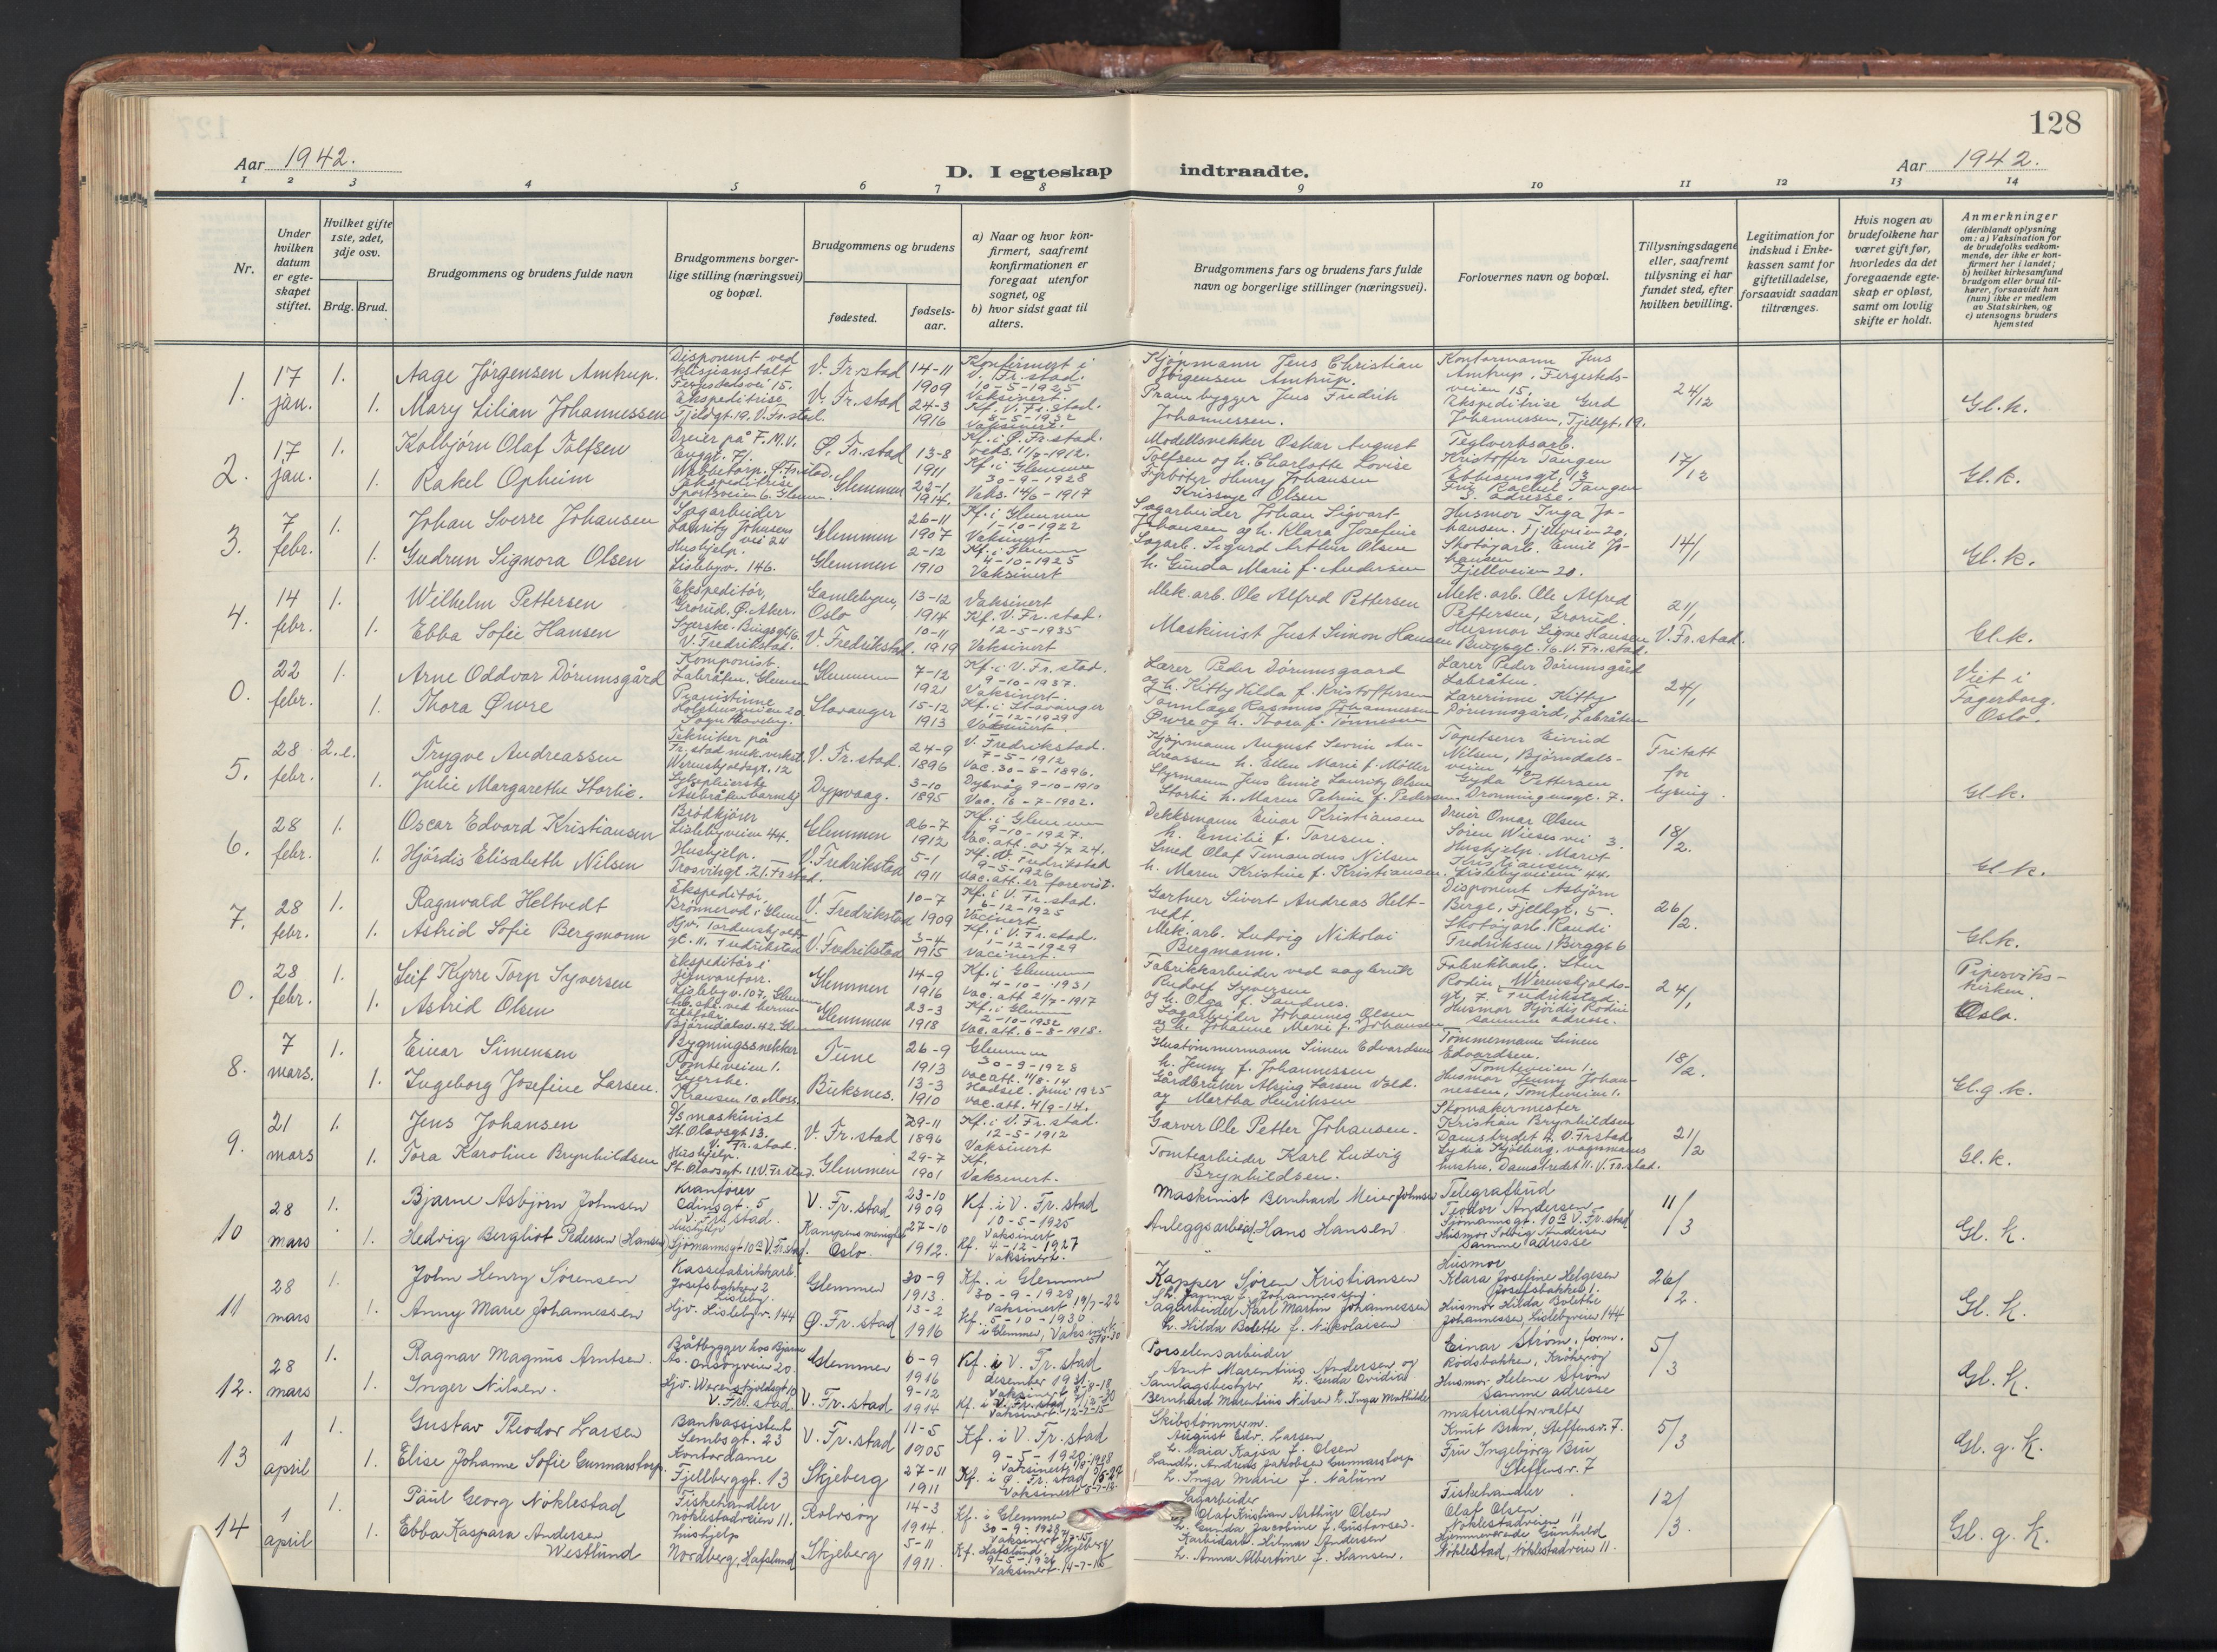 128
Aar 1942.
D. I egteskap indtraadte.
Aar 1942.
1 2 3 4 5 6 7 8 9 10 11 12 13 14
Nr.
Under hvilken datum er egteskapet stiftet.
Hvilket gifte 1ste, 2det, 3dje osv.
Brdg. Brud.
Brudgommens og brudens fulde navn
Brudgommens borgerlige stilling (næringsvei) og bopæl.
Brudgommens og brudens
fødested.
fødselsaar.
a) Naar og hvor konfirmert, saafremt konfirmationen er foregaat utenfor sognet, og
b) hvor sidst gaat til alters.
Brudgommens fars og brudens fars fulde navn og borgerlige stillinger (næringsvei).
Forlovernes navn og bopæl.
Tillysningsdagene eller, saafremt tillysning ei har fundet sted, efter hvilken bevilling.
Legitimation for indskud i Enkekassen samt for giftetilladelse, forsaavidt saadan tiltrænges.
Hvis nogen av brudefolkene har været gift før, hvorledes da det foregaaende egteskap er opløst, samt om lovlig skifte er holdt.
Anmerkninger
(deriblandt oplysning om: a) Vaksination for de brudefolks vedkommende, der ikke er konfirmert her i landet; b) hvilket kirkesamfund brudgom eller brud tilhører, forsaavidt han (hun) ikke er medlem av Statskirken, og c) utensogns bruders hjemsted
1. 17 jan. 1. Aage Jørgensen Amtrup. Disponent ved Fergestedsvei 15. V. Fr.stad 14-11 1909 Konfirmert i V. Fr.stad. 10-5-1925 Vaksinert. Kjøpmann Jens Christian Jørgensen Amtrup. Kontormann Jens Amtrup, Fergestedsveien 15, 24/12 Gl. k.
1. Mary Lilian Johannessen Ekspeditrise Fjeldgt. 19. V. Fr.stad. V. Fr.stad 24-3 1916 Kf. V. Fr.stad. 8-5-1932 Vaksinert. Prambygger Jens Fredrik Johannessen. Ekspeditrise Gerd Johannessen, Fjellgt. 19.
2. 17 jan. 1. Kolbjørn Olaf Tolfsen Dreier på F.M.V. Ø. Fr.stad 13-8 1911 Kf. i Ø. Fr.stad. Modellsnekker Oskar August Tolfsen og h. Charlotte Lovise Teglverksarb. Kristoffer Tangen 17/12 Gl. k.
1. Rakel Opheim Ekspeditrise Sportsveien 6. Glemmen. Glemmen 23-1 1914. Kf. i Glemmen 30-9-1928 Vaks. 14/6-1917 Fyrbøter Henry Johansen Olsen Fru Rachel Tangen s. adresse.
3. 7 febr. 1. Johan Sverre Johansen Sagarbeider Lauritz Johnsens vei 24 Glemmen 26-11 1907 Kf. i Glemmen 1-10-1922 Vaksinert Sagarbeider Johan Sigvart Johansen og h. Klara Josefine Husmor Inga Johansen. Fjellveien 20. 14/1 Gl. k.
1. Gudrun Signora Olsen Hushjelp. Lislebyv. 146. Glemmen 2-12 1910 Kf. i Glemmen 4-10-1925 Vaksinert Sagarb. Sigurd Arthur Olsen h. Gunda Marie f. Andersen Skotøyarb. Emil Johansen Fjellveien 20.
4. 14 febr. 1. Wilhelm Pettersen Ekspeditør, Grorud, Ø. Aker. Gamlebyen, Oslo 13-12 1914 Vaksinert Mek. arb. Ole Alfred Pettersen Mek. arb. Ole Alfred Pettersen, Grorud. 21/1 V. Fr.stad. Gl. k.
1. Ebba Sofie Hansen Syerske. V. Fredrikstad. V. Fredrikstad. 10-11 1919 Kf. V. Fr.stad. 12-5-1935 Vaksinert Maskinist Just Simon Hansen Husmor Signe Hansen V. Fr.stad.
0. 22 febr. 1. Arne Oddvar Dørumsgård Komponist. Labråten, Glemmen Glemmen 7-12 1921 Kf. i V. Fr.stad. 9-10-1937. Vaksinert. Lærer Peder Dørumsgaard og h. Kitty Hilda f. Kristoffersen Lærer Peder Dørumsgård Labråten. 24/1 Viet i Fagerborg. Oslo.
1. Thora Øwre Pianistinne Holsteinsveien 20 Stavanger 15-12 1913 Kf. i Stavanger 1-12-1929 Vaksinert Tannlæge Rasmus Johannessen Øwre og h. Thora f. Tønnesen Lærerinne Kitty Dørumsgård, Labråten
5. 28 febr. 2.e. Trygve Andreassen Tekniker på Fr.stad mek. verksted Werenskjoldsgt. 12 V. Fr.stad. 24-9 1896 V. Fredrikstad. 7-5-1912 Vac. 30-8-1896. Kjøpmann August Severin Andreassen h. Ellen Marie f. Møller Tapetserer Eivind Nilsen, Bjørndalsveien 40. Fritatt for lysning. Gl. k.
1. Julie Margarethe Storlie. Sykepleierske Dypvaag. 3-10 1895 Dypvåg 9-10-1910 Vac. 16-7-1902. Styrmann Jens Emil Lauritz Olsen Storlie h. Maren Petrine f. Pedersen. Gyda Pettersen Dronningensgt. 7.
6. 28 febr. 1. Oscar Edvard Kristiansen Brødkjører Lislebyveien 44. Glemmen 26-7 1912 Kf. i Glemmen 9-10-1927. Vac. att. av 2/7 24. Dekksmann Einar Kristiansen h. Emilie f. Toresen. Dreier Omar Olsen Søren Wieses vei 3. 18/2. Gl. k.
1. Hjørdis Elisabeth Nilsen Hushjelp. Trosvikgt. 21. Fr.stad. V. Fredrikstad 5-1 1911 Kf. V. Fredrikstad 9-5-1926 Vac. att. er forevist. Smed Olaf Timandus Nilsen h. Maren Kristine f. Kristiansen. Hushjelp. Marit Kristiansen Lislebyveien 44.
7. 28 febr. 1. Ragnvald Heltvedt Ekspeditør, Brønnerød i Glemmen V. Fredrikstad 10-7 1909 Kf. i V. Fr.stad. 6-12-1925 Vacinert. Gartner Sivert Andreas Heltvedt. Disponent Asbjørn Berge, Fjellgt. 5. 26/2. Gl. k.
1. Astrid Sofie Bergmann Hjv. Tordenskjoldsgt. 11. Fredrikstad V. Fredrikstad 3-4 1915 Kf. i V. Fr.stad. 1-12-1929 Vacinert. Mek. arb. Ludvig Nikolai Bergmann. Skotøyarb. Randi Fredriksen, Birggt 6
0. 28 febr. 1. Leif Kyrre Torp Syversen Ekspeditør i Lisleby v. 107, Glemmen Glemmen 14-9 1916 Kf. i Glemmen 4-10-1931 Vac. att 21/7-1917 Fabrikkarbeider ved sagbruk Rudolf Syversen og h. Olga f. Sandnes. Fabrikkarb. Sten Rodin, Werenskjoldsgt. 7. Fredrikstad. 24/1 Pipervikskirken. Oslo.
1. Astrid Olsen Bjørndalsv. 42. Glemmen Glemmen 23-3 1918 Kf. i Glemmen 2-10-1932 Vac. att. 6-8-1918. Sagarbeider Johannes Olsen og h. Johanne Marie f. Johansen Husmor Hjørdis Rodin samme adresse.
8. 7 mars. 1. Einar Simensen Bygningssnekker Tomteveien 1. Tune 26-9 1913 Glemmen 30-9-1928 vac att. 11/8-14 Hustømmermann Simen Edvardsen h. Jenny f. Johannessen Tømmermann Simen Edvardsen. Tomteveien 1. 18/2. Gl. g. k.
1. Ingeborg Josefine Larsen. Syerske. Kransen 10. Moss. Buksnes. 13-3 1910 Hadsel. juni 1925 vac. att. 4/9-14. Gårdbruker Larsen Vold. og Martha Henriksen Husmor Jenny Johannessen, Tomteveien 1.
9. 21 mars 1. Jens Johansen D/S maskinist St. Olavsgt 13. V. Fr.stad. V. Fr.stad 29-11 1896 Kf. i V. Fr.stad. 12-5-1912 Vaksinert Garver Ole Petter Johansen. Skomakermester Kristian Brynhildsen Damstredet 4. V. Fr.stad 21/2 Gl. k.
1. Tora Karoline Brynhildsen Hushjelp. St. Olavsgt. 11. V. Fr.stad. Glemmen 29-7 1901 Kf. Vaksinert. Tomtearbeider Karl Ludvig Brynhildsen. Lydia Kjølberg, vognmanns hustru, Damstredet 11. V. Fr.stad.
10 28 mars 1. Bjarne Asbjørn Johnsen Kranfører Edinsgt. 5 V. Fr.stad. V. Fr.stad 23-10 1909 Kf. i V. Fr.stad 10-5-1925 Vaksinert Maskinist Bernhard Meier Johnsen Telegrafbud Teodor Andersen Sjømannsgt. 10a V. Fr.stad 11/3 Gl. k.
1. Hedvig Bergliot Pedersen (Hansen) Hushjelp Sjømannsgt 10a V. Fr.stad. Kampens menighet Oslo. 27-10 1912. Kf. 4-12-1927 Vaksinert. Anleggsarbeid. Hans Hansen Husmor Solveig Andersen Samme adresse
11 28 mars 1. John Henry Sørensen Kassefabrikkarb. Josefsbakken 2 Lisleby. Glemmen 30-9 1913. Kf. i Glemmen 30-9-1928 Vaksinert 19/7-22 Kapper Søren Kristiansen h. Janna f. Johannessen. Husmor Klara Josefine Helgesen Josefsbakken 1. 26/2. Gl. k.
1. Anny Marie Johannessen Hjv. Lislebyv. 144 Ø. Fr.stad 13-2 1916 Kf. 5-10-1930 i Glemmen, Vaksinert Sagarbeider Karl Martin Johannessen h. Hilda Bolette f. Nikolaisen Husmor Hilda Bolette Johannessen, Lislebyveien 144
12. 28 mars 1. Ragnar Magnus Arntsen. Båtbygger hos Bjarne Aas. Onsøyveien 20. Glemmen 6-9 1916 Kf. i V. Fr.stad desember 1931. Vaksinert 8-8-18 Porselensarbeider Arnt Marentius Andersen og h. Gerda Ovidia Einar Strøm, form. Rødsbakken, Kråkerøy 5/3 Gl. k.
1. Inger Nilsen. Hjv. Werenskjoldsgt 10 V. Fr.stad. V. Fr.stad 9-12 1914 Kf. i V. Fr.stad Vaksinert 12-7-15 Samlagsbestyrer Bernhard Marentius Nilsen h. Inga Mathilde Husmor Helene Strøm Samme adresse
13 1 april 1. Gustav Theodor Larsen Bankassistent Lembsgt. 23 V. Fr.stad 11-5 1905 Kf. i V. Fr.stad 9-5-1920 Vaksinert Skibstømmerm. August Edv. Larsen h. Maia Kajsa f. Olsen materialforvalter Knut Brun, Steffensv. 7. 5/3 Gl. g. k.
1. Elise Johanne Sofie Gunnarstorp Kontordame Fjellberggt. 13 Skjeberg 27-11 1911 Kf. i Ø. Fr.stad Vaksinert Landh. Andreas Jakobsen Gunnarstorp h. Inga Marie f. Nålum Fru Ingebjørg Bru Steffensv. 7
14 1 april 1. Paul Georg Nøklestad Fiskehandler Nøklestadveien 11. Rolvsøy 14-3 1914. Kf. i Glemmen 30-9-1928 Vaksinert Sagarbeider Olaf Kristian Arthur Olsen h. Gunda Jacobine f. Gustavsen. Fiskehandler Olaf Olsen Nøklestadveien 11 12/3. Gl. g. k.
1. Ebba Kaspara Andersen Westlund hushjelp Nordberg, Hafslund Skjeberg 5-11 1911. Kf. Hafslund, Skjeberg 9-5-1926 Vaksinert 14-7-16 Karbidarb. Hilmar Andersen h. Anna Albertine f. Hansen. Hjemmeværende Gunhild Nøklestad, Nøklestadveien 11.